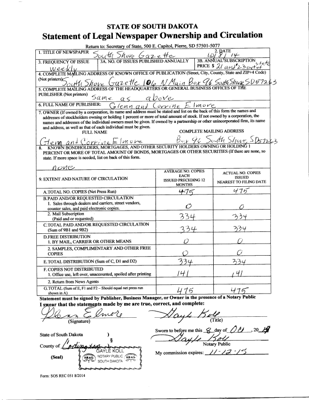 STATE OF SOUTH DAKOTA
Statement of Legal Newspaper Ownership and Circulation
Return to: Secretary of State, 500 E. Capitol, Pierre, SD 57501-5077
1. TITLE OF NEWSPAPER
South Shore Gazette
2. DATE
3. FREQUENCY OF ISSUE
Weekly
3A. NO. OF ISSUES PUBLISHED ANNUALLY
3B. ANNUAL SUBSCRIPTION
PRICE $
4. COMPLETE MAILING ADDRESS OF KNOWN OFFICE OF PUBLICATION (Street, City, County, State and ZIP+4 Code)
(Not printers):
South Shore Gazette
South Shore SD
5. COMPLETE MAILING ADDRESS OF THE HEADQUARTERS OR GENERAL BUSINESS OFFICES OF THE
PUBLISHER (Not printer)
Same as above
6. FULL NAME OF PUBLISHER:
Glenn and Corrine Elmore
7. OWNER (If owned by a corporation, its name and address must be stated and also on the back of this form the names and
addresses of stockholders owning or holding 1 percent or more of total amount of stock. If not owned by a corporation, the
names and addresses of the individual owners must be given. If owned by a partnership or other unincorporated firm, its name
and address, as well as that of each individual must be given.
FULL NAME
COMPLETE MAILING ADDRESS
Glenn and Corrine Elmore
South Shore, SD
8. KNOWN BONDHOLDERS, MORTGAGEES, AND OTHER SECURITY HOLDERS OWNING OR HOLDING 1
PERCENT OR MORE OF TOTAL AMOUNT OF BONDS, MORTGAGES OR OTHER SECURITIES (If there are none, so
state. If more space is needed, list on back of this form.
None
9. EXTENT AND NATURE OF CIRCULATION
AVERAGE NO. COPIES
EACH
ISSUED PRECEDING 12
MONTHS
ACTUAL NO. COPIES
ISSUED
NEAREST TO FILING DATE
A. TOTAL NO. COPIES (Net Press Run)
475
475
B. PAID AND/OR REQUESTED CIRCULATION
1. Sales through dealers and carriers, street vendors,
counter sales, and paid electronic copies.
0
0
2. Mail Subscription
(Paid and or requested)
334
334
C. TOTAL PAID AND/OR REQUESTED CIRCULATION
(Sum of 9B1 and 9B2)
334
334
D. FREE DISTRIBUTION
1. BY MAIL, CARRIER OR OTHER MEANS
0
0
2. SAMPLES, COMPLIMENTARY AND OTHER FREE
COPIES
0
0
E. TOTAL DISTRIBUTION (Sum of C, D1 and D2)
334
334
F. COPIES NOT DISTRIBUTED
1. Office use, left over, unaccounted, spoiled after printing
141
141
2. Return from News Agents
G. TOTAL (Sum of E, F1 and F2 - Should equal net press run
shown in A)
475
475
Statement must be signed by Publisher, Business Manager, or Owner in the presence of a Notary Public
I swear that the statements made by me are true, correct, and complete:
Glenn Elmore
(Signature)
(Title)
State of South Dakota )
County of Codington )
(Seal)
GAYLE KOLL
NOTARY PUBLIC
SOUTH DAKOTA
SEAL
SEAL
Sworn to before me this 8 day of Oct, 20
Gayle Koll
Notary Public
My commission expires: 11-12-15
Form: SOS REC 051 8/2014